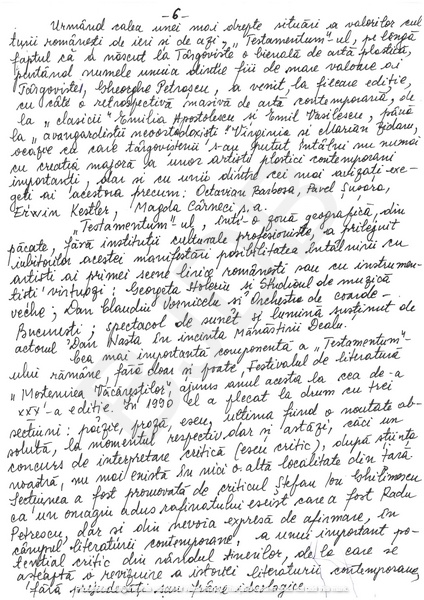 - 6 -
Urmând calea unei mai drepte situări a valorilor cul
turii românești de ieri și de azi, "Testamentum"-ul, pe lângă
faptul că a născut la Târgoviște o bienală de artă plastică,
purtând numele unuia dintre fiii de mare valoare ai
Târgoviștei, Gheorghe Petrașcu, a venit, la fiecare ediție,
cu câte o retrospectivă masivă de artă contemporană, de
la "clasicii" Emilia Apostolescu și Emil Vasilescu, până
la "avangardiștii neoortodocși" Virginia și Marian
ocazie cu care târgoviștenii s-au putut întâlni nu numai
cu creația majoră a unor artiști plastici contemporani
importanți, dar și cu unii dintre cei mai avizați exe-
geți ai acestora precum: Octavian Barbosa, Pavel Șușară,
Erwin Kessler, Magda Cârneci ș.a.
"Testamentum"-ul, într-o zonă geografică, din
păcate, fără instituții culturale profesioniste, a prilejuit
iubitorilor acestei manifestări posibilitatea întâlnirii cu
artiști ai primei scene lirice românești sau cu instrumen-
tiști virtuozi: Georgeta și Studioul de muzică
veche; Dan Claudiu Vornicelu și Orchestra de coarde-
București; spectacol de sunet și lumină susținut de
actorul Dan Nasta în incinta Mănăstirii Dealu.
Cea mai importantă componentă a "Testamentum"-
ului rămâne, fără doar și poate, Festivalul de literatură
"Moștenirea Văcăreștilor", ajuns anul acesta la cea de-a
XXV-a ediție. În 1990 el a plecat la drum cu trei
secțiuni: poezie, proză, eseu, ultima fiind o noutate ab-
solută, la momentul respectiv, dar și astăzi, căci un
concurs de interpretare critică (eseu critic), după știința
noastră, nu mai există în nici o altă localitate din țară.
Secțiunea a fost promovată de criticul Ștefan Ion Ghilimescu
ca un omagiu adus rafinatului eseist care a fost Radu
Petrescu, dar și din nevoia expresă de afirmare, în
câmpul literaturii contemporane, a unui important po-
tențial critic din rândul tinerilor, de la care se
așteaptă o revizuire a istoriei literaturii contemporane,
fără prejudecăți sau frâne ideologice.